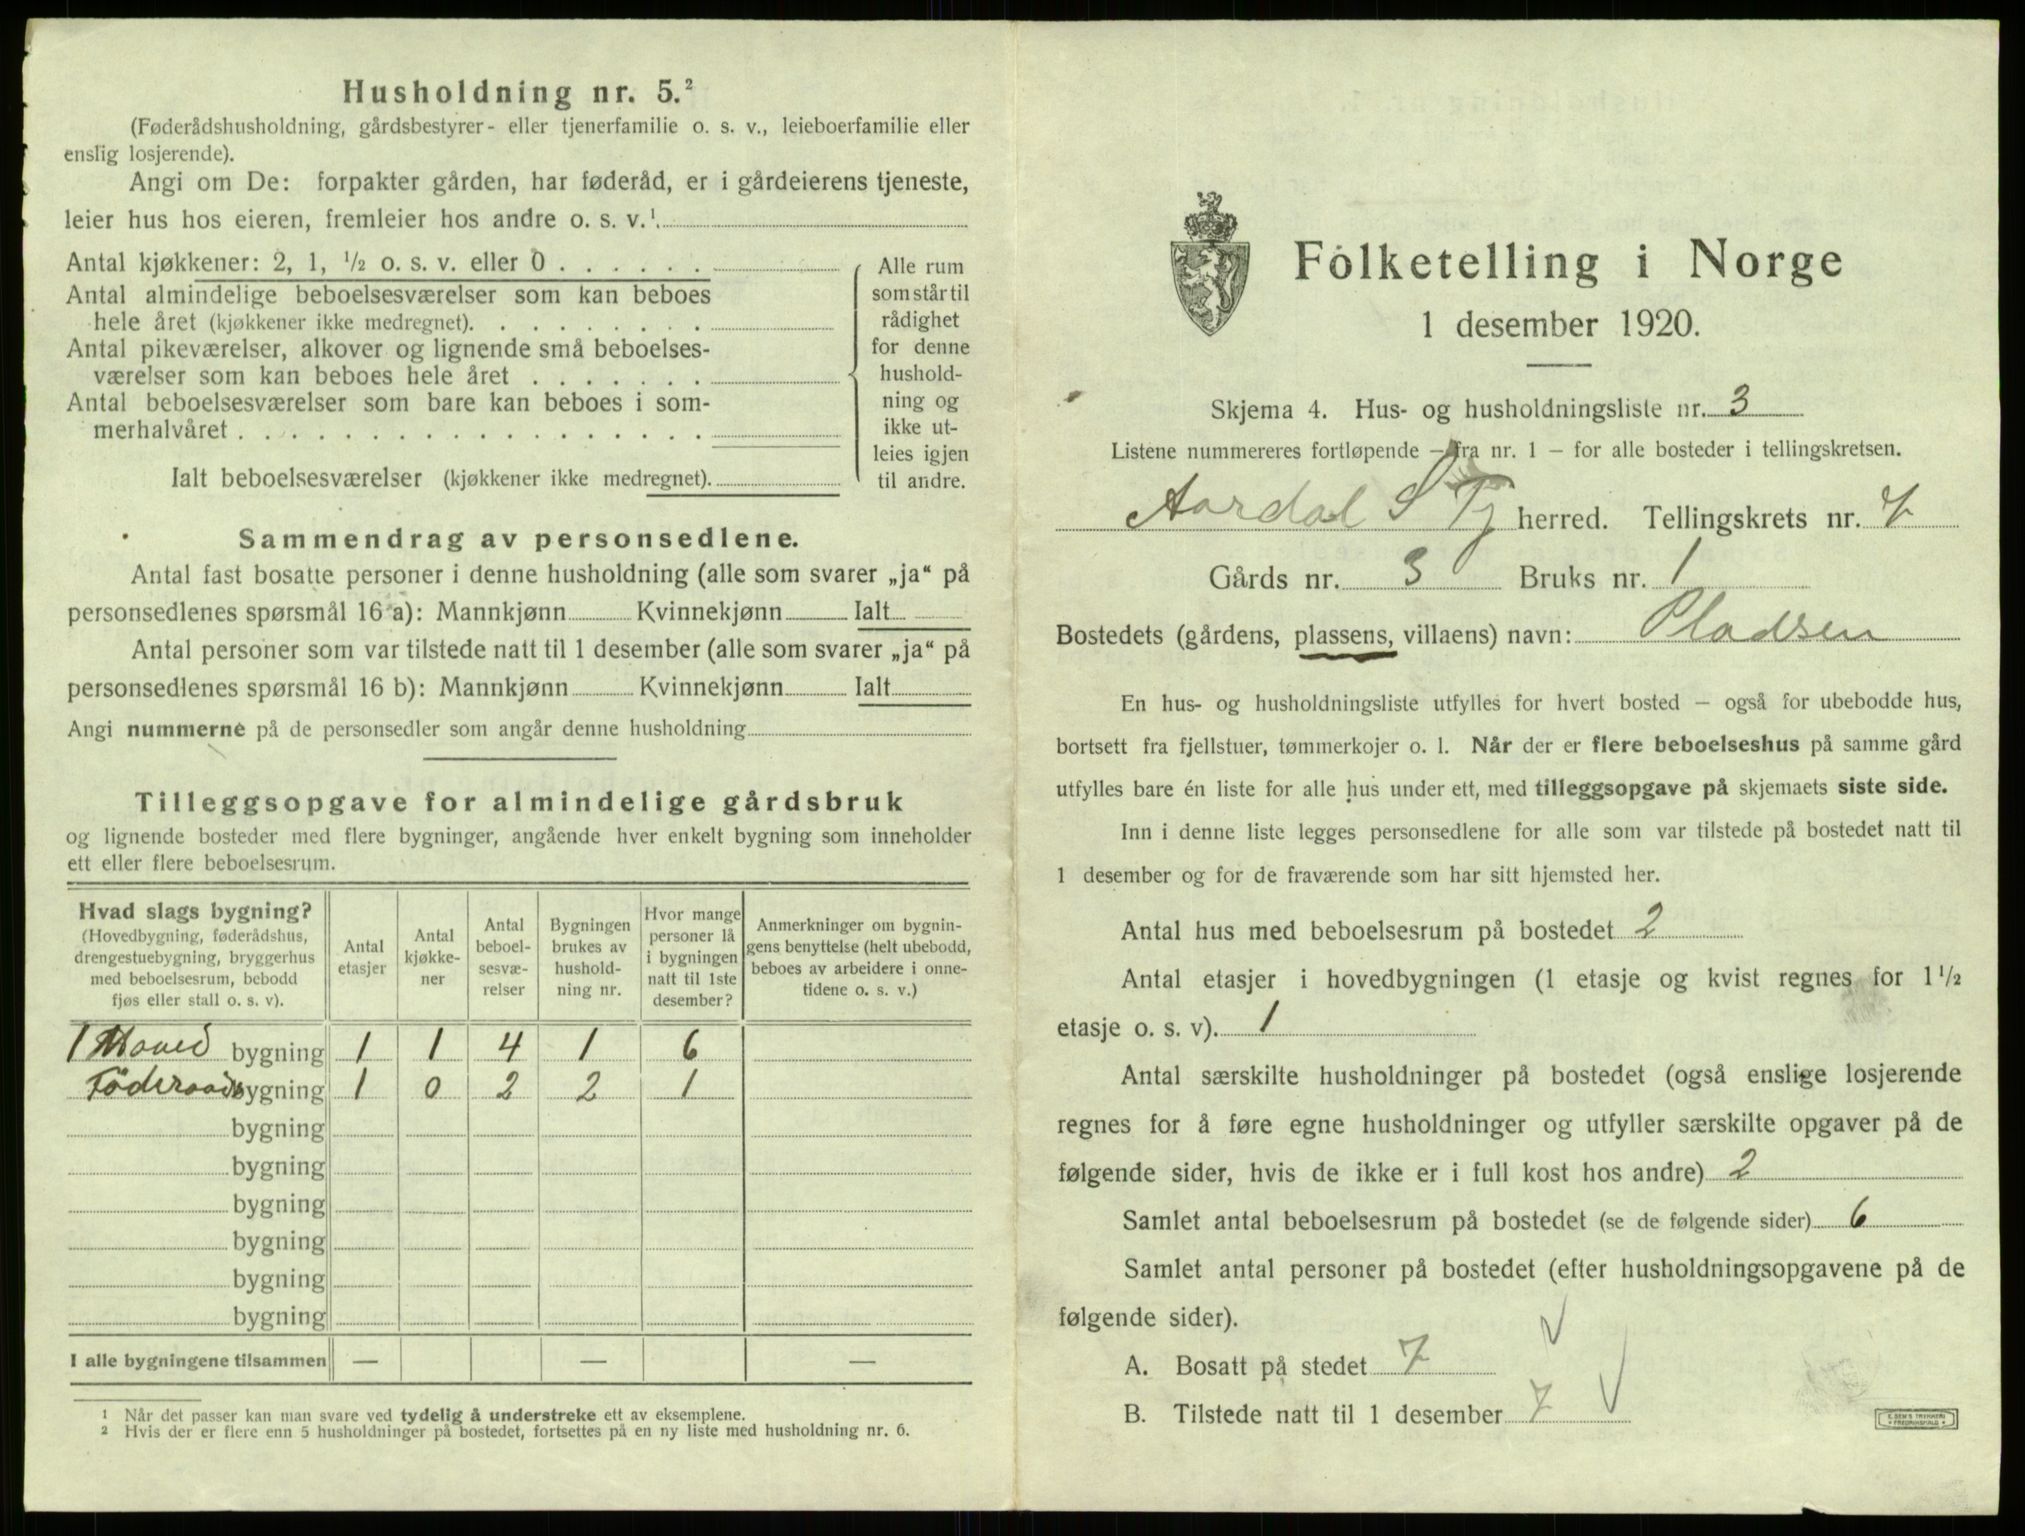 Husholdning nr. 5.²
(Føderådshusholdning, gårdsbestyrer- eller tjenerfamilie o. s. v., leieboerfamilie eller
enslig losjerende).
Angi om De: forpakter gården, har føderåd, er i gårdeierens tjeneste,
leier hus hos eieren, fremleier hos andre o. s. v.¹
Antal kjøkkener: 2, 1, ½ o. s. v. eller 0
Antal almindelige beboelsesværelser som kan beboes
hele året (kjøkkener ikke medregnet).
Antal pikeværelser, alkover og lignende små beboelses-
værelser som kan beboes hele året
Antal beboelsesværelser som bare kan beboes i som-
merhalvåret
Ialt beboelsesværelser (kjøkkener ikke medregnet).
Alle rum
som står til
rådighet
for denne
hushold-
ning og
ikke ut-
leies igjen
til andre.
Sammendrag av personsedlene.
Antal fast bosatte personer i denne husholdning (alle som svarer „ja“ på
personsedlenes spørsmål 16 a): Mannkjønn Kvinnekjønn Ialt
Antal personer som var tilstede natt til 1 desember (alle som svarer „ja“ på
personsedlenes spørsmål 16 b): Mannkjønn Kvinnekjønn Ialt
Angi nummerne på de personsedler som angår denne husholdning
Tilleggsopgave for almindelige gårdsbruk
og lignende bosteder med flere bygninger, angående hver enkelt bygning som inneholder
ett eller flere beboelsesrum.
Hvad slags bygning?
(Hovedbygning, føderådshus,
drengestuebygning, bryggerhus
med beboelsesrum, bebodd
fjøs eller stall o. s. v).
Antal
etasjer
Antal
kjøkke-
ner
Antal
beboel-
sesvæ-
relser
Bygningen
brukes av
hushold-
ning nr.
Hvor mange
personer lå
i bygningen
natt til 1ste
desember?
Anmerkninger om bygnin-
gens benyttelse (helt ubebodd,
beboes av arbeidere i onne-
tidene o. s. v.)
1 Hoved bygning 1 1 4 1 6
Föderaads bygning 1 0 2 2 1
bygning
bygning
bygning
bygning
bygning
bygning
I alle bygningene tilsammen — — —
¹ Når det passer kan man svare ved tydelig å understreke ett av eksemplene.
² Hvis der er flere enn 5 husholdninger på bostedet, fortsettes på en ny liste med husholdning nr. 6.
Folketelling i Norge
1 desember 1920.
Skjema 4. Hus- og husholdningsliste nr. 3
Listene nummereres fortløpende — fra nr. 1 — for alle bosteder i tellingskretsen.
Aardal S Fj herred. Tellingskrets nr. 7
Gårds nr. 3 Bruks nr. 1
Bostedets (gårdens, plassens, villaens) navn: Pladsen
En hus- og husholdningsliste utfylles for hvert bosted — også for ubebodde hus,
bortsett fra fjellstuer, tømmerkojer o. l. Når der er flere beboelseshus på samme gård
utfylles bare én liste for alle hus under ett, med tilleggsopgave på skjemaets siste side.
Inn i denne liste legges personsedlene for alle som var tilstede på bostedet natt til
1 desember og for de fraværende som har sitt hjemsted her.
Antal hus med beboelsesrum på bostedet 2
Antal etasjer i hovedbygningen (1 etasje og kvist regnes for 1½
etasje o. s. v). 1
Antal særskilte husholdninger på bostedet (også enslige losjerende
regnes for å føre egne husholdninger og utfyller særskilte opgaver på de
følgende sider, hvis de ikke er i full kost hos andre) 2
Samlet antal beboelsesrum på bostedet (se de følgende sider) 6
Samlet antal personer på bostedet (efter husholdningsopgavene på de
følgende sider).
A. Bosatt på stedet 7
B. Tilstede natt til 1 desember 7